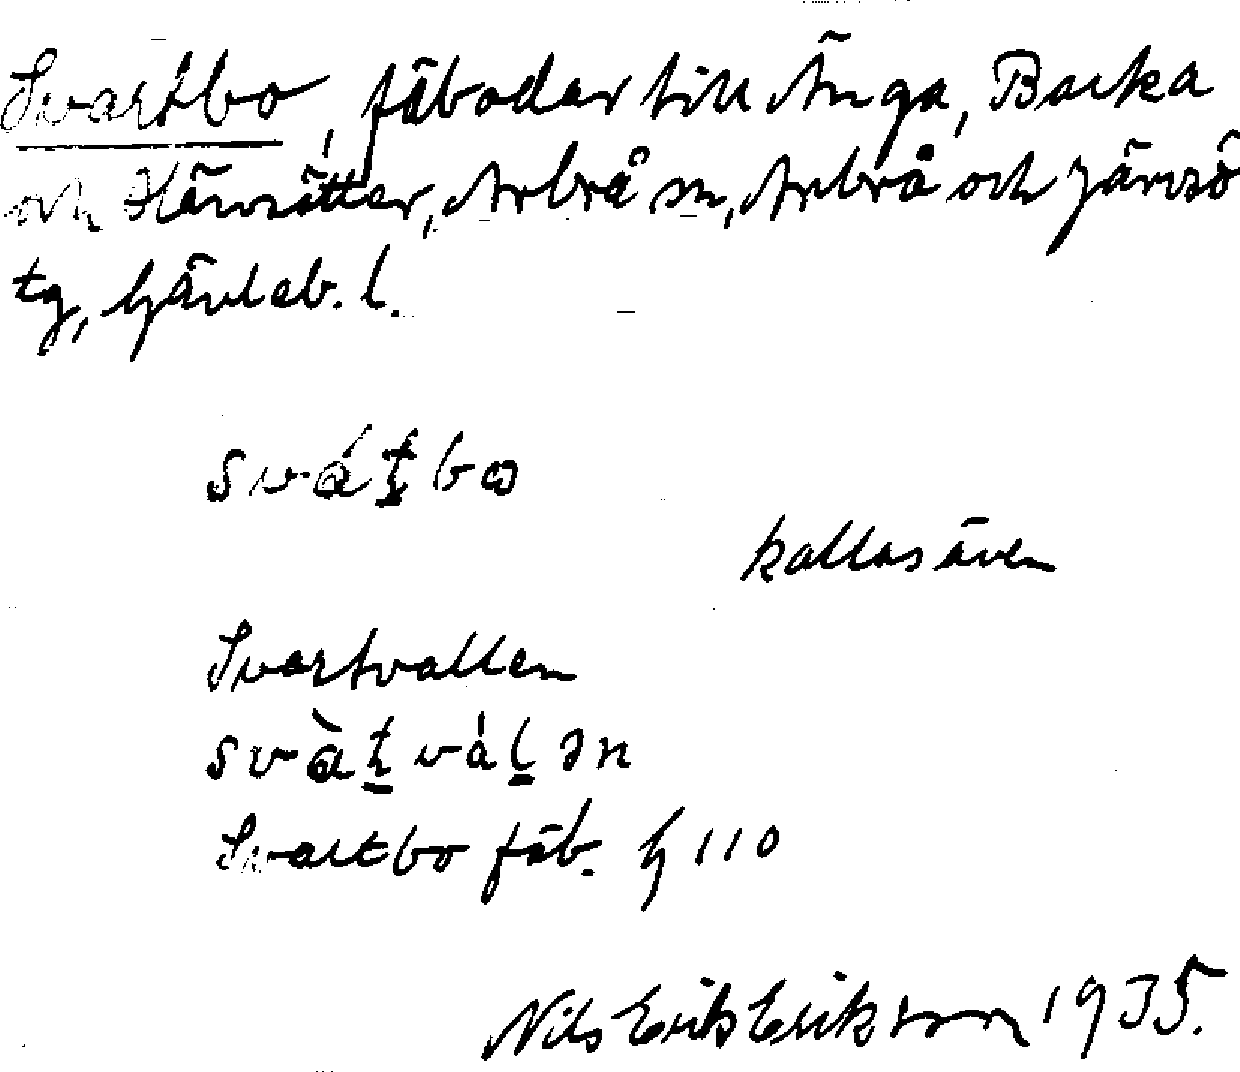 Svartbo, fäbodar till Änga, Backa
och Hävsätter, Arbrå sn, Arbrå och Järvsö
tg, Gävleb. l.
kallas även
Svartvallen
Svartbo fäb. G 110
Nils Erik Eriksson 1935.